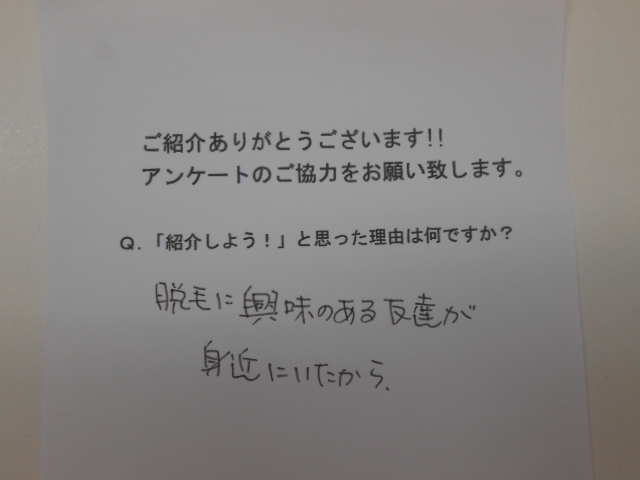 ご紹介ありがとうございます!!
アンケートのご協力をお願い致します。
Q.「紹介しよう!」と思った理由は何ですか?
脱毛に興味のある友達が
身近にいたから.